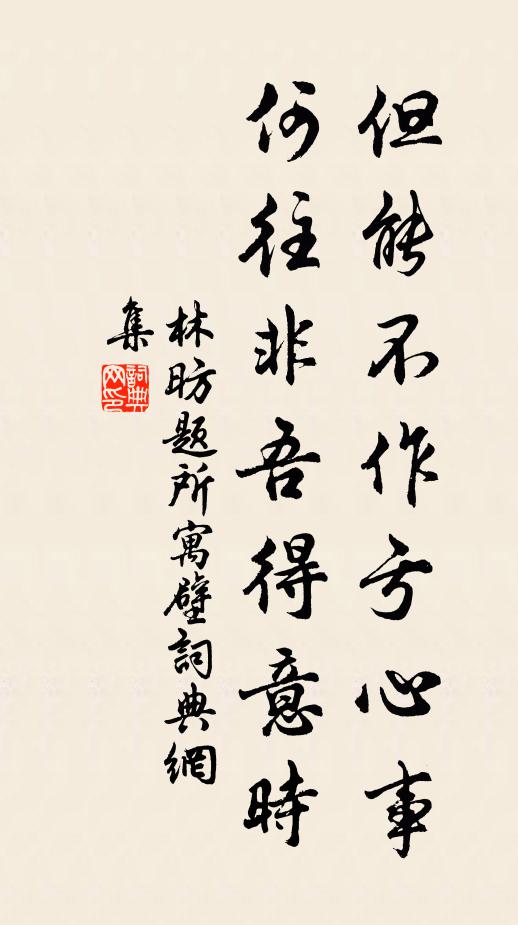 但能不作亏心事
何往非吾得意時
林昉题所寓壁詞典網
集
詞典
网印